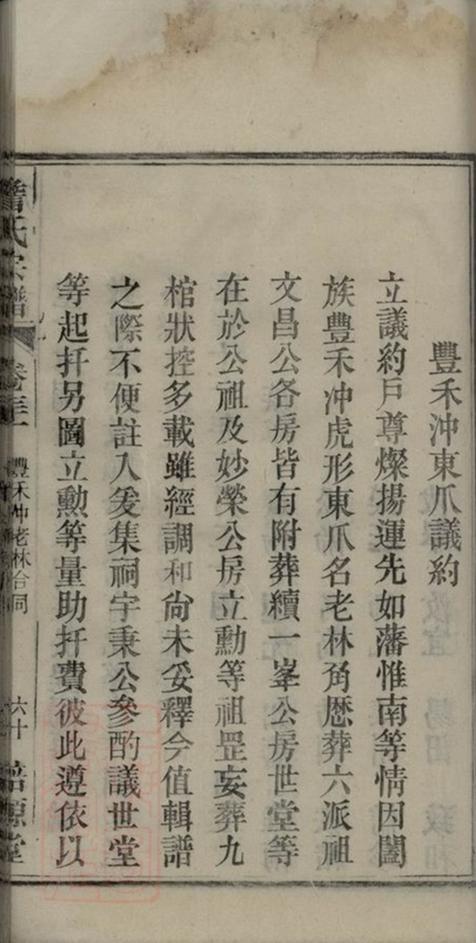 豐禾冲東爪議約
立議約戶尊燦揚運先如藩惟南等情因闔
族豐禾冲虎形東爪名老林角歷葬六派祖
文昌公各房皆有附葬續一峯公房世堂等
在於公祖及妙榮公房立勳等祖罡妄葬九
棺狀控多載雖經調和尙未妥釋今值輯譜
之際不便註入爰集祠宇秉公參酌議世堂
等起扦另圖立勳等量助扦費彼此遵依以
氏宗譜
豐禾冲老林合同
六十
培源堂